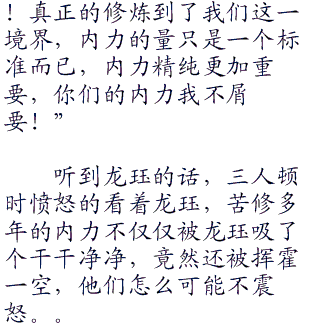 ！真正的修炼到了我们这一
境界，内力的量只是一个标
准而已，内力精纯更加重
要，你们的内力我不屑
要！”
听到龙珏的话，三人顿
时愤怒的看着龙珏，苦修多
年的内力不仅仅被龙珏吸了
个干干净净，竟然还被挥霍
一空，他们怎么可能不震
怒。。